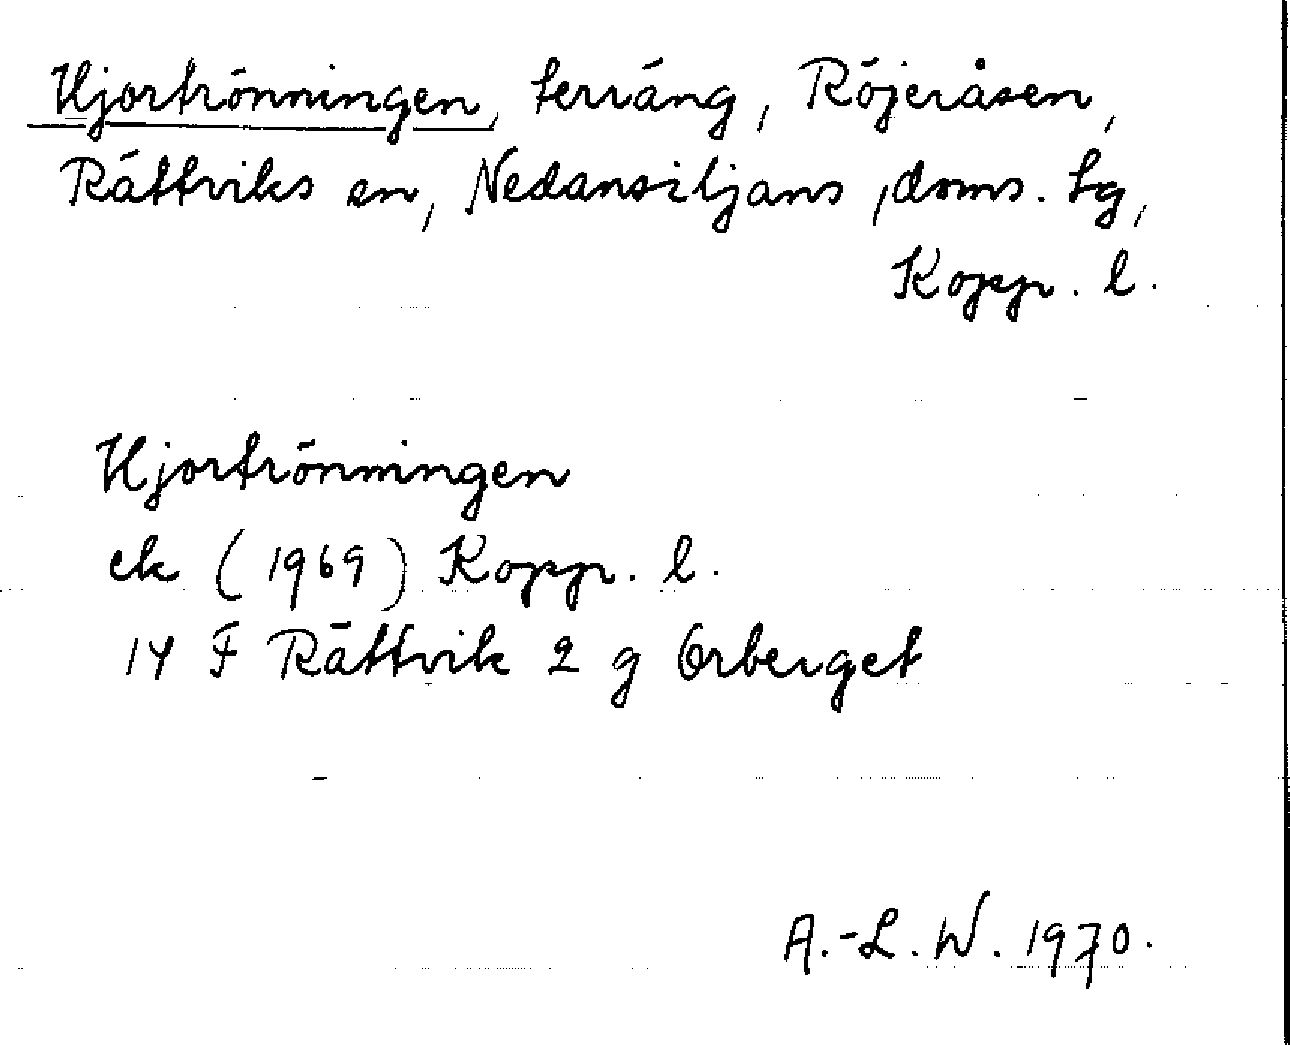 Hjortrönningen, terräng, Röjeråsen,
Rättviks sn, Nedansiljans doms. tg,
Kopp. l.
Hjortrönningen
ek (1969) Kopp. l.
14 F Rättvik 2 g Orberget
A.-L. W. 1970.